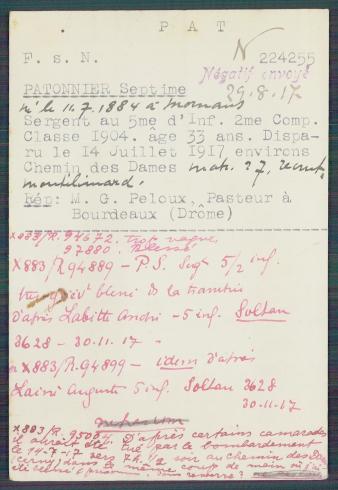 P A T
F. s. N. N 224255
Négatif envoyé
29.8.17
PATONNIER Septime
né le 11.7.1884 à Mornans
Sergent au 5me d'Inf. 2me Comp.
Classe 1904. âge 33 ans. Dispa-
ru le 14 Juillet 1917 environs
Chemin des Dames matr. 27, recrut.
montélimard.
Rép: M. G. Peloux, Pasteur à
Bourdeaux (Drôme)
x883/R.94672. trop vague,
97880. blessé
x883/R94889 – P.S. Sgt 5/2 inf.
blessé ds la tranchée
d'après Labitte André – 5 inf. Soltau
3628 – 30–11.17 –
x883/R.94899 – idem d'après
Lainé Auguste 5 inf. Soltau 3628
30–11–17
x883/R. 95084. D'après certains camarades
il aurait été tué par le bombardement
le 14–7–17 vers 7 h. 1/2 soir au chemin des Dames
(cerny) dans le même coup de main où j'ai
été